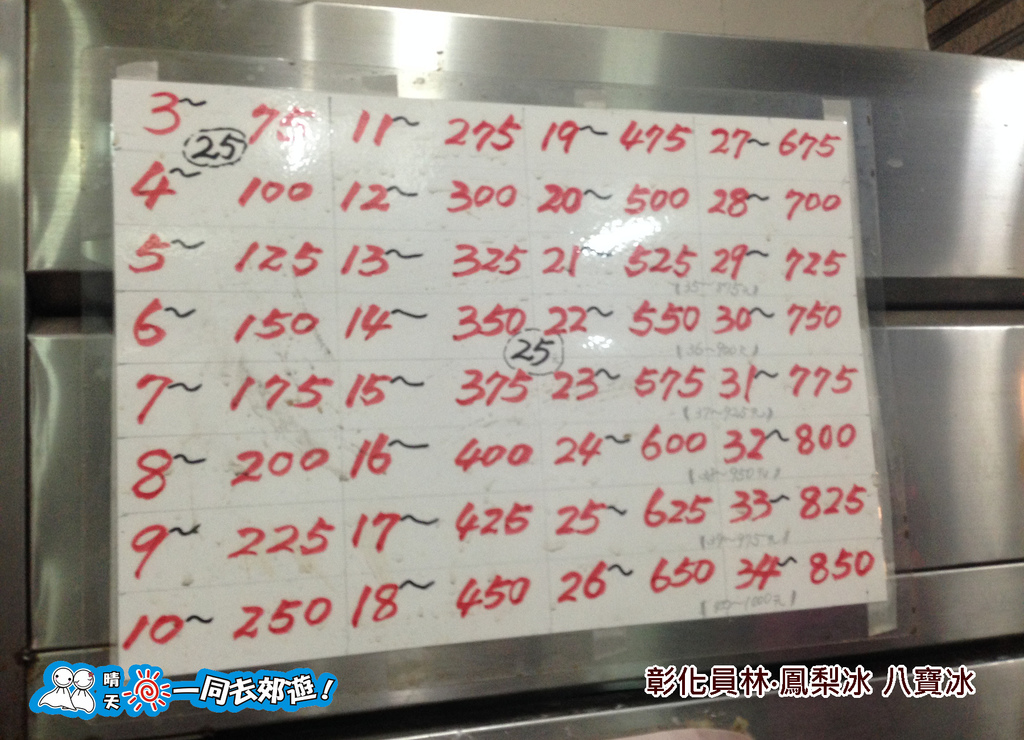 3~ 75 11~ 275 19~ 475 27~ 675
25
4~ 100 12~ 300 20~ 500 28~ 700
5~ 125 13~ 325 21~ 525 29~ 725
【35~875元】
6~ 150 14~ 350 22~ 550 30~ 750
25
【36~900元】
7~ 175 15~ 375 23~ 575 31~ 775
【37~925元】
8~ 200 16~ 400 24~ 600 32~ 800
【38~950元】
9~ 225 17~ 425 25~ 625 33~ 825
【39~975元】
10~ 250 18~ 450 26~ 650 34~ 850
~1000元】
晴天 一同去郊遊!
彰化員林·鳳梨冰 八寶冰